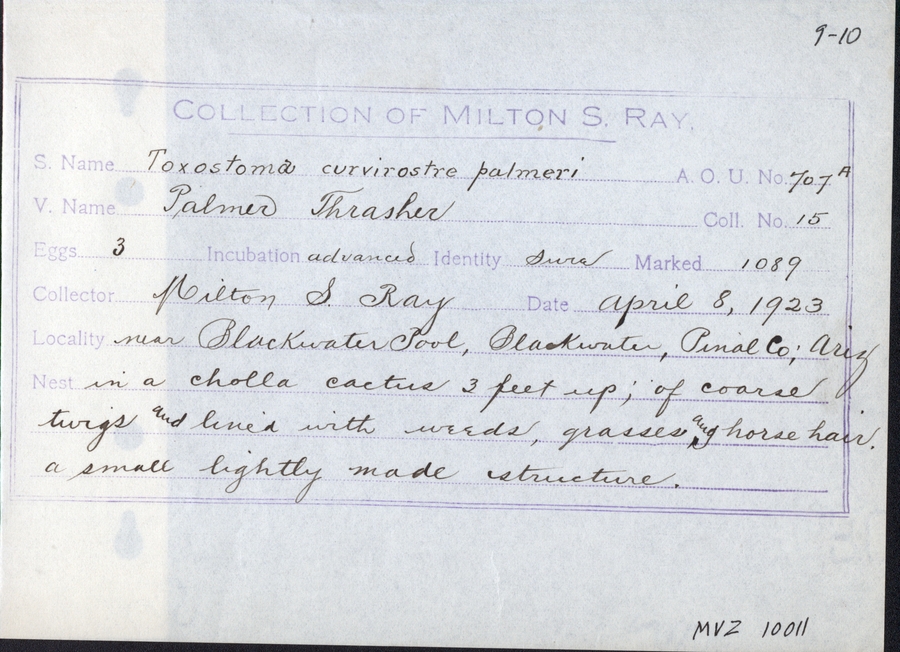 9-10
COLLECTION OF MILTON S. RAY.
S. Name Toxostoma curvirostre palmeri A. O. U. No. 707A
V. Name Palmer Thrasher Coll. No. 15
Eggs 3 Incubation advanced Identity Sure Marked 1089
Collector Milton S. Ray Date April 8, 1923
Locality near Blackwater Pool, Blackwater, Pinal Co; Ariz
Nest in a cholla cactus 3 feet up; of coarse
twigs and lined with weeds, grasses and horse hair.
a small lightly made structure.
MVZ 10011